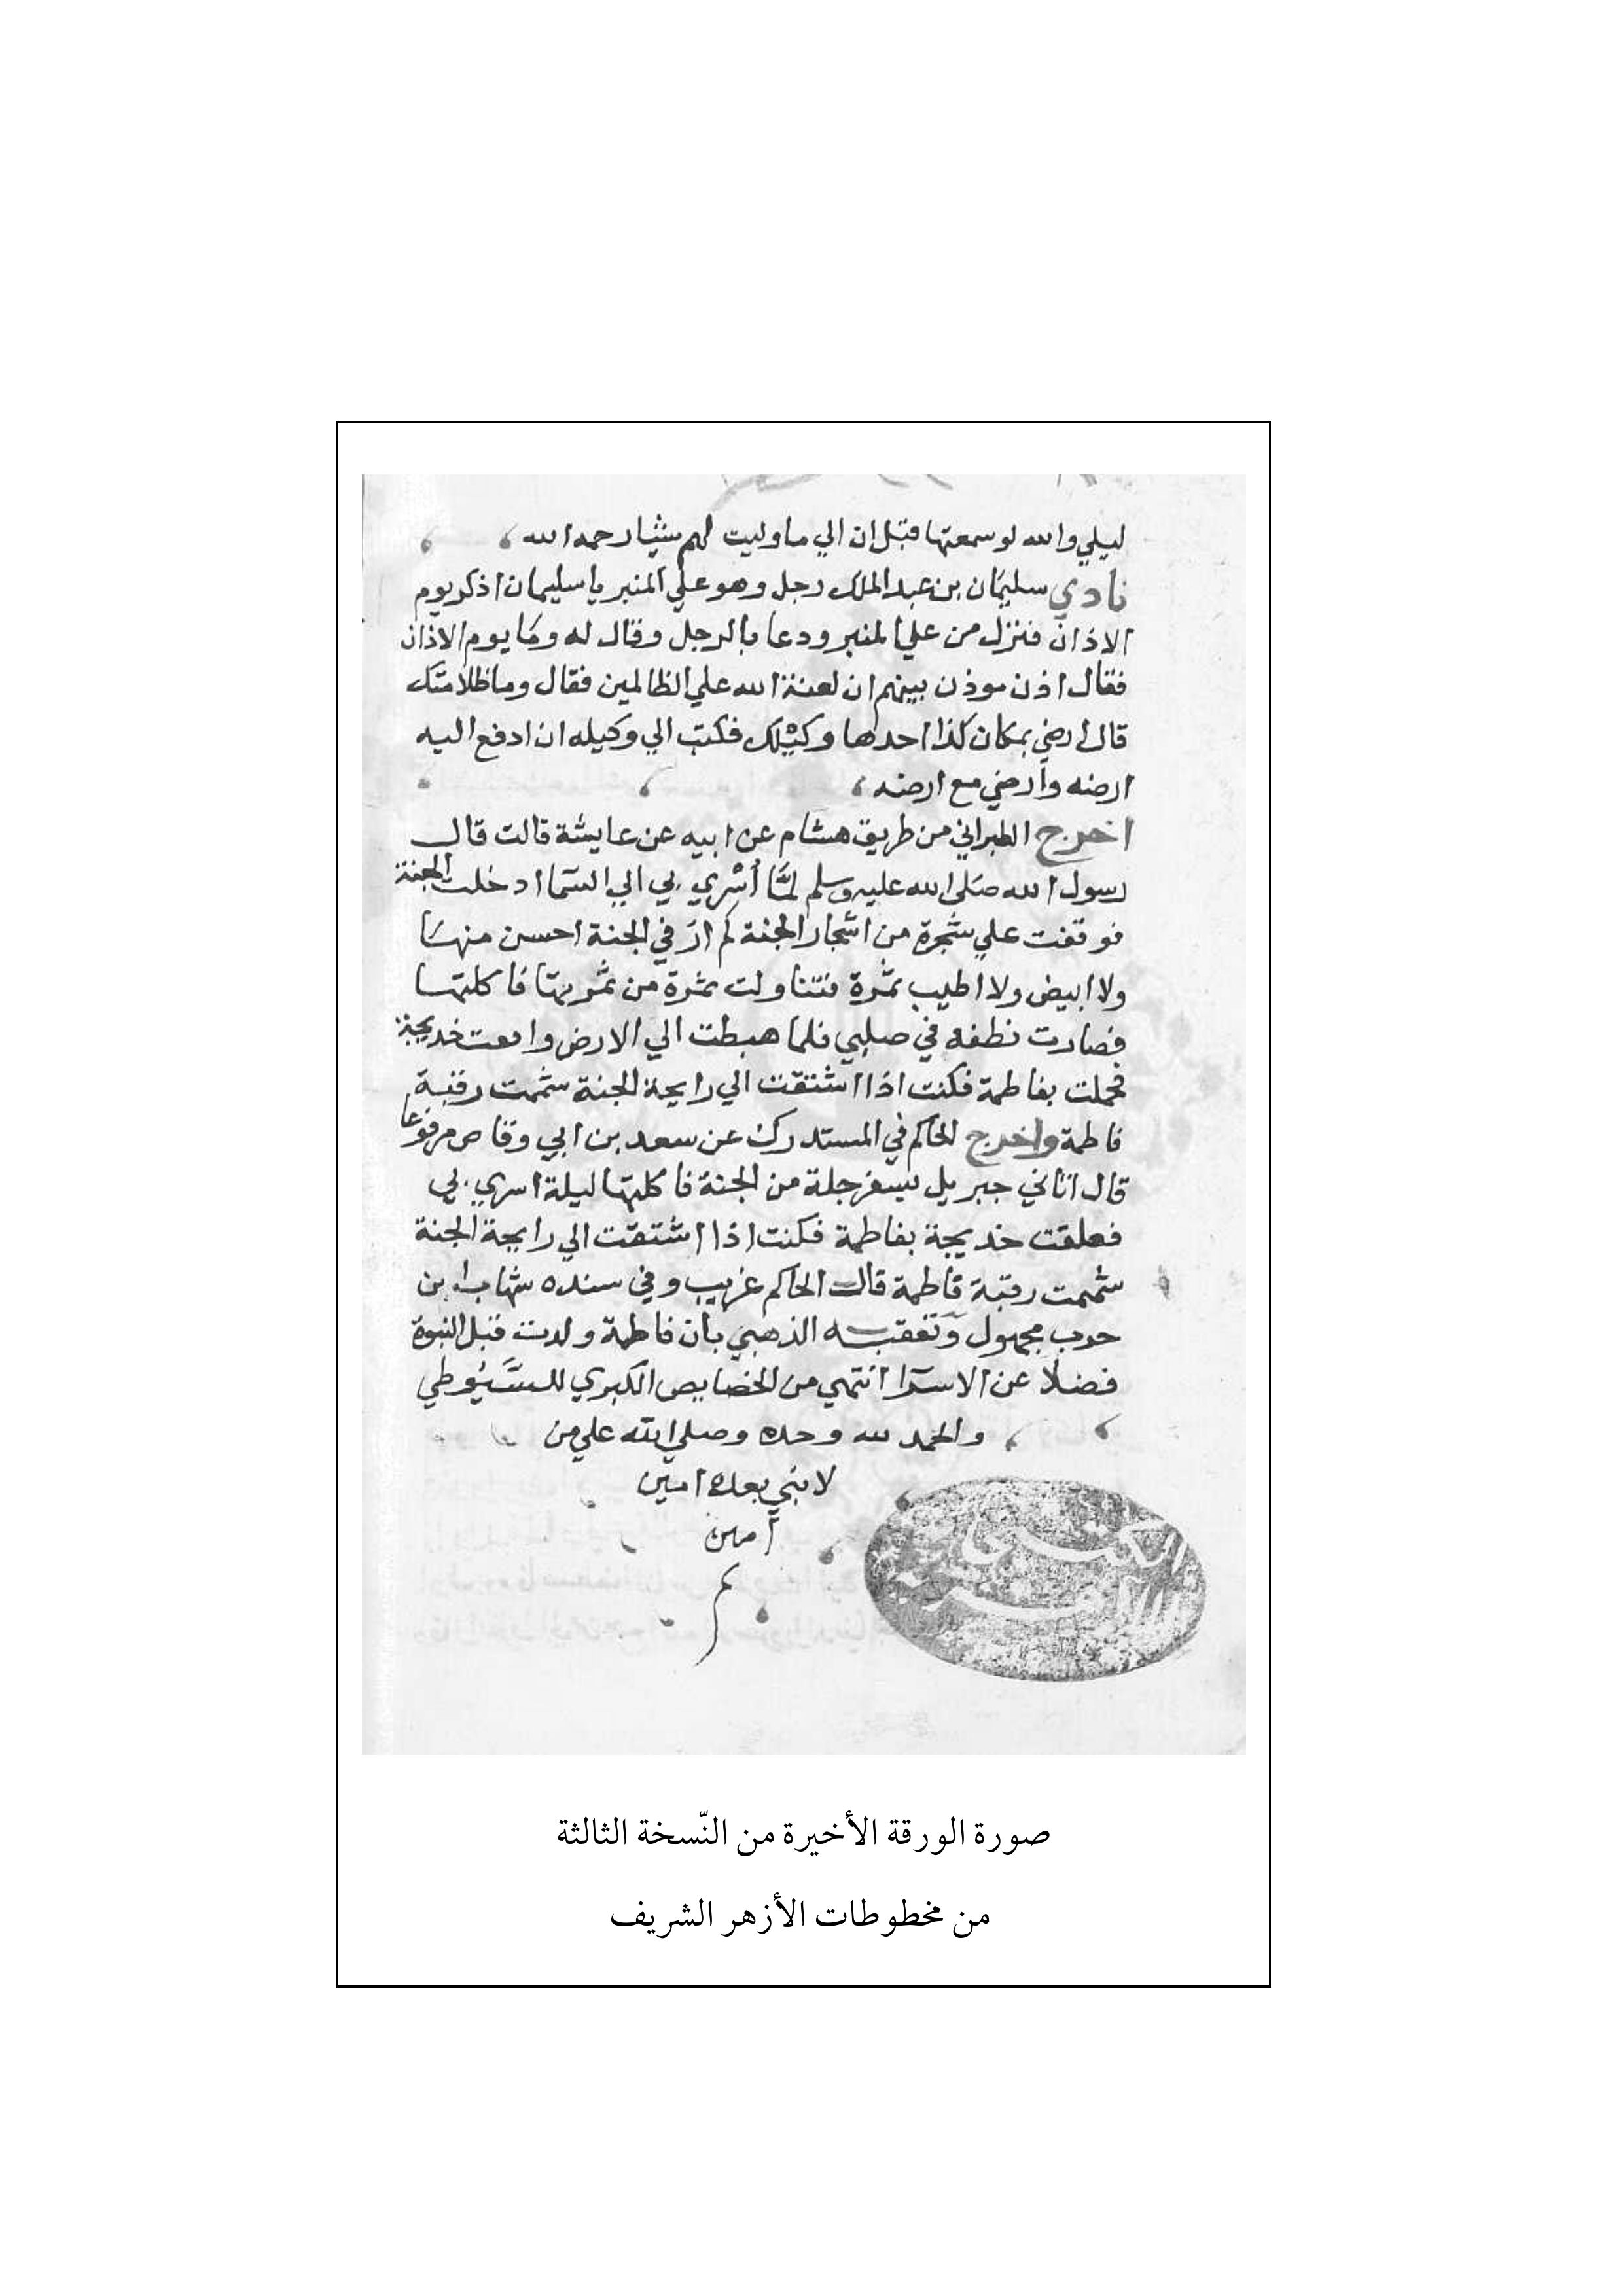 ليلي والله لو سمعتها قبل ان الي ما وليت لهم شيا رحمه الله
نادي سليمان بن عبد الملك رجل وهو علي المنبر يا سليمان اذكر يوم
الاذان فنزل من علي المنبر ودعا بالرجل وقال له وما يوم الاذان
فقال اذن موذن بينهم ان لعنة الله علي الظالمين فقال وما ظلامتك
قال ارضي بمكان كذا احدها وكيلك فكتب الي وكيله ان ادفع اليه
ارضه وارضي مع ارضه
اخرج الطبراني من طريق هشام عن ابيه عن عايشة قالت قال
رسول الله صلى الله عليه وسلم لما أسري بي الي السما ادخلت الجنة
فوقفت علي شجرة من اشجار الجنة لم ار في الجنة احسن منها
ولا ابيض ولا اطيب ثمرة فتناولت ثمرة من ثمرتها فاكلتها
فصارت نطفه في صلبي فلما هبطت الي الارض واقعت خديجة
فحملت بفاطمة فكنت اذا اشتقت الي رايحة الجنة شممت رقبة
فاطمة واخرج الحاكم في المستدرك عن سعد بن ابي وقاص مرفوعا
قال اتاني جبريل بسفرجلة من الجنة فاكلتها ليلة اسري بي
فعلقت خديجة بفاطمة فكنت اذا اشتقت الي رايحة الجنة
شممت رقبة فاطمة قال الحاكم غريب وفي سنده شهاب ابن
حرب مجهول وتعقبه الذهبي بان فاطمة ولدت قبل النبوة
فضلا عن الاسرا انتهي من الخصايص الكبري للسيوطي
والحمد لله وحده وصلي الله علي من
لا نبي بعده امين
امين
م
الكتبخانة
الازهرية
صورة الورقة الأخيرة من النّسخة الثالثة
من مخطوطات الأزهر الشريف